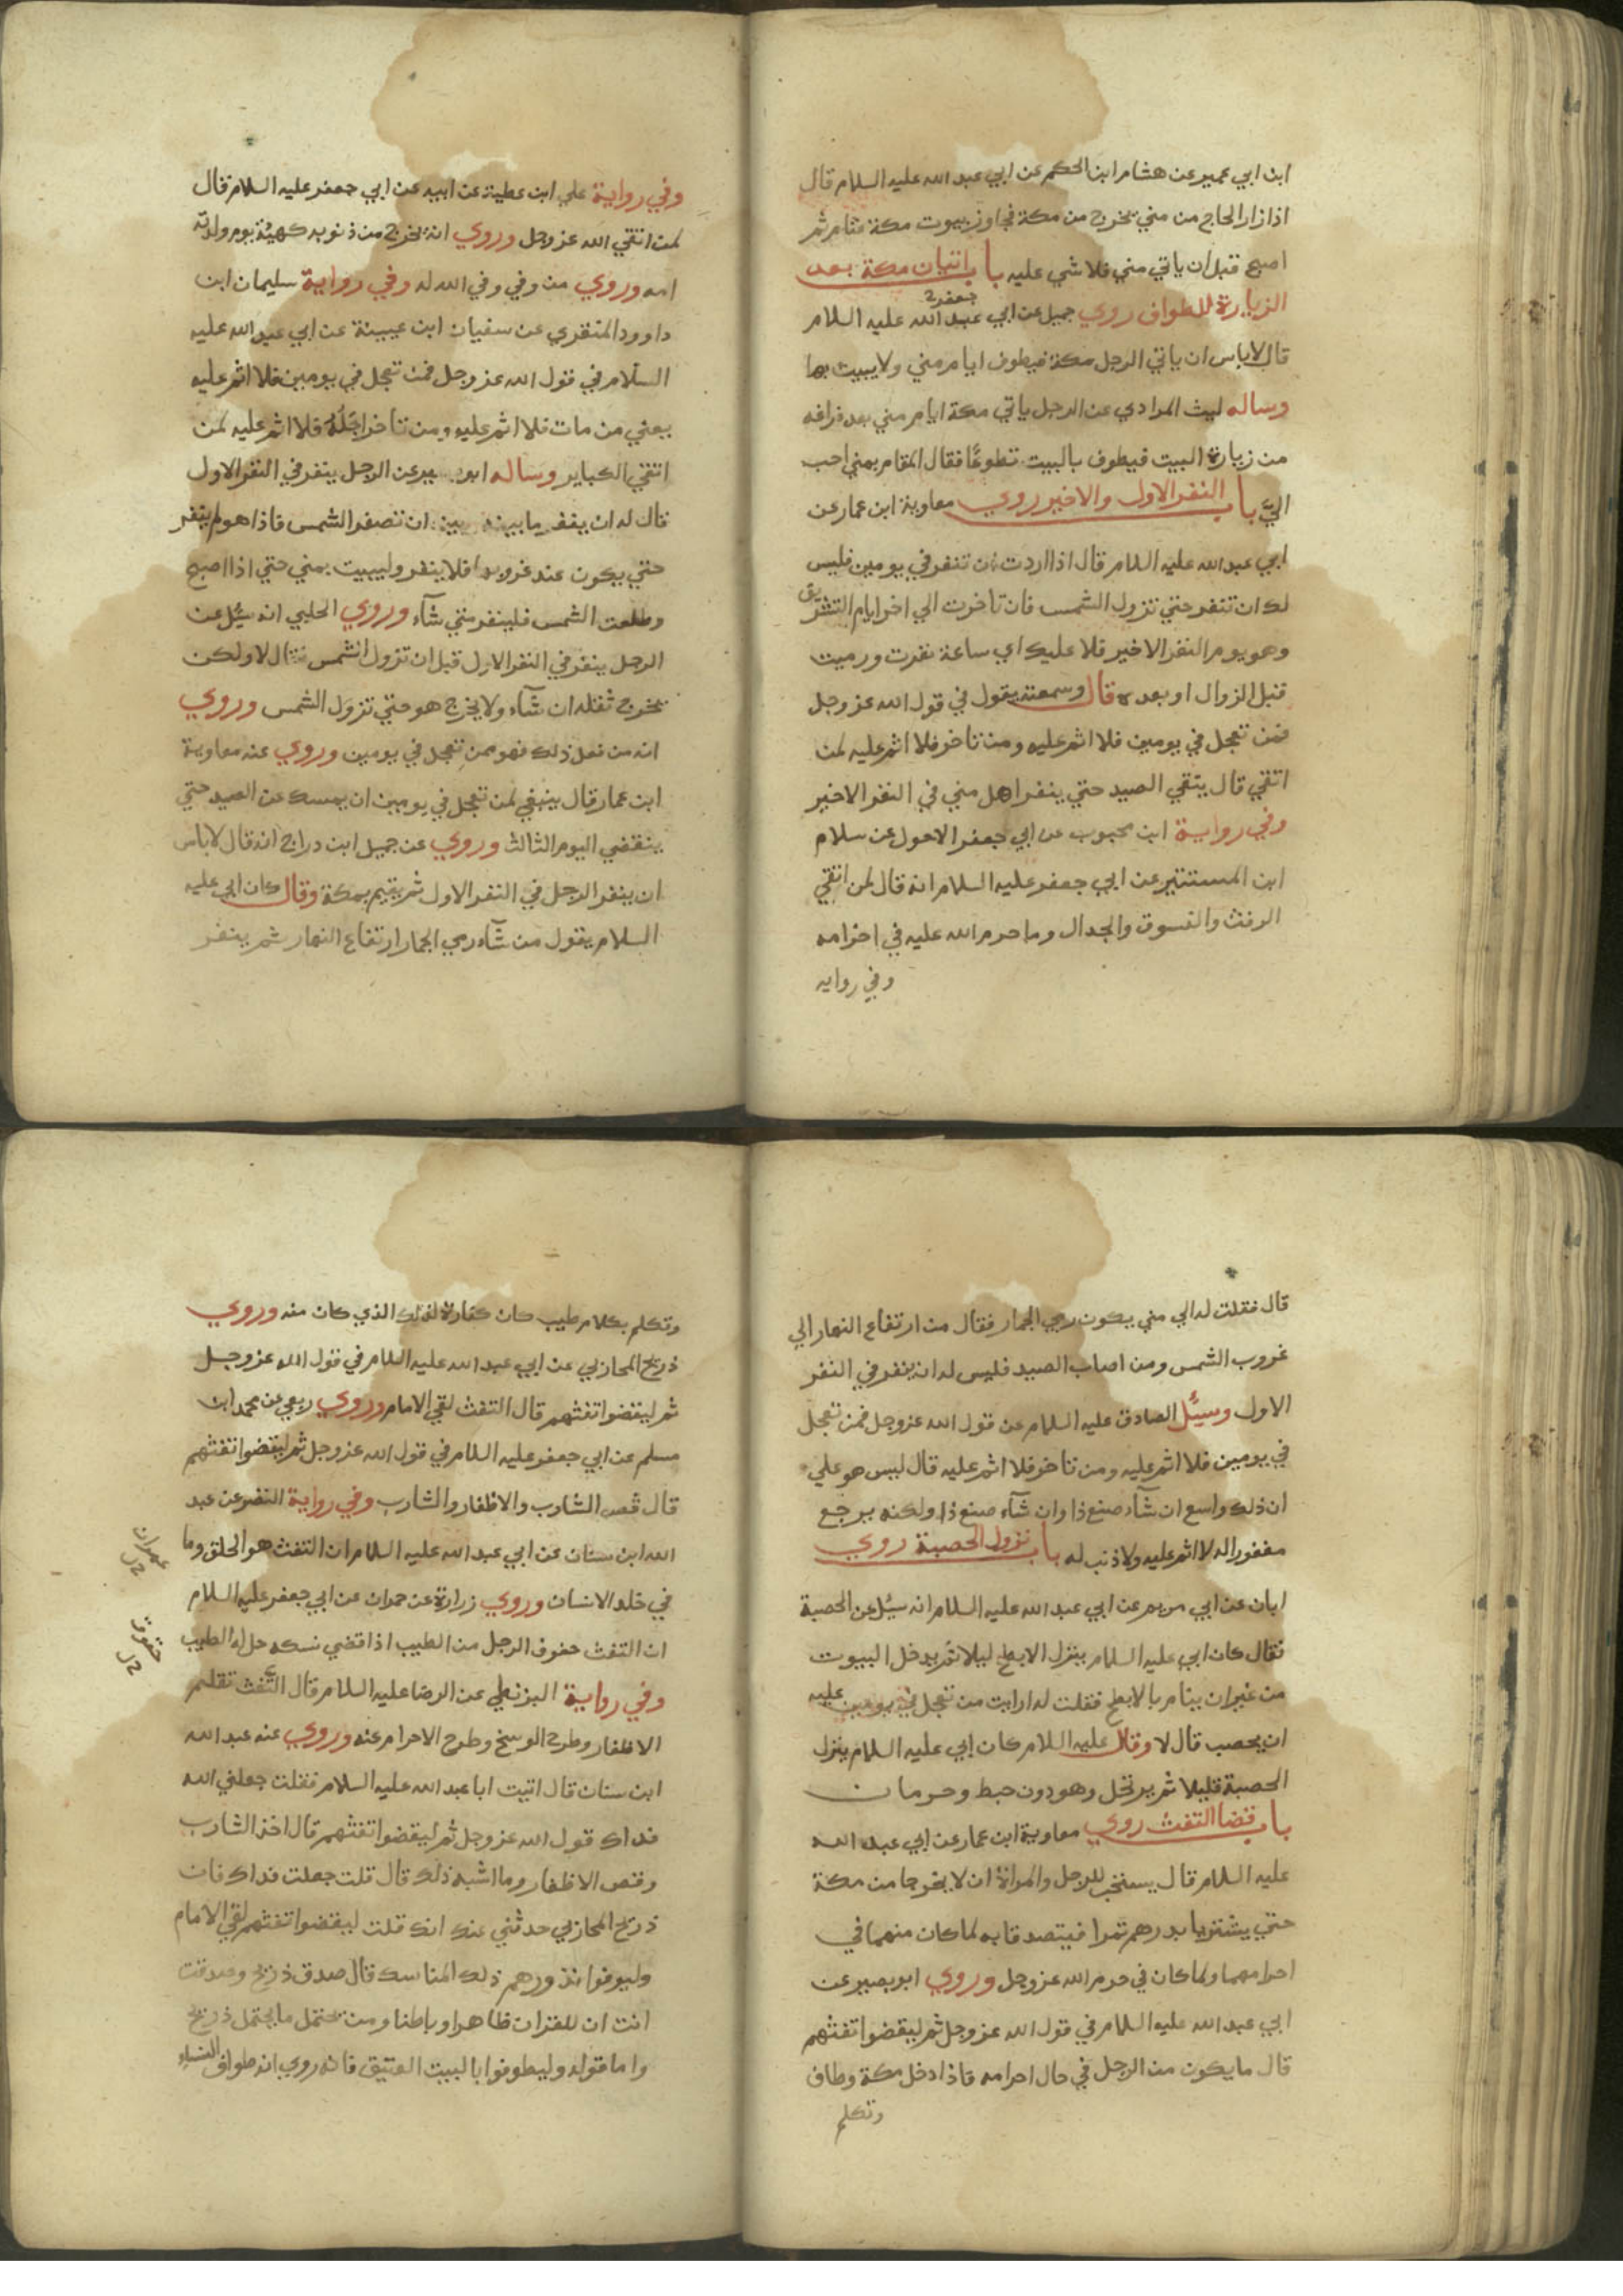 ابن ابي عمير عن هشام ابن الحكم عن ابي عبد الله عليه السلام قال
اذا زار الحاج من مني يخرج من مكة فجاوز بيوت مكة فنام ثم
اصبح قبل ان ياتي مني فلا شي عليه باب اتيان مكة بعد
الزيارة للطواف روي جميل عن ابي عبد الله جعفر عليه السلام
قال لا باس ان ياتي الرجل مكة فيطوف ايام مني ولا يبيت بها
وساله ليث المرادي عن الرجل ياتي مكة ايام مني بعد فراغه
من زيارة البيت فيطوف بالبيت تطوعًا فقال المقام بمني احب
اليّ باب النفر الاول والاخير روي معاوية ابن عمار عن
ابي عبد الله عليه السلام قال اذا اردت ان تنفر في يومين فليس
لك ان تنفر حتي تزول الشمس فان تاخرت الي اخر ايام التشريق
وهو يوم النفر الاخير فلا عليك اي ساعة نفرت ورميت
قبل الزوال او بعده قال وسمعته يقول في قول الله عز وجل
فمن تعجل في يومين فلا اثم عليه ومن تاخر فلا اثم عليه لمن
اتقي قال يتقي الصيد حتي ينفر اهل مني في النفر الاخير
وفي رواية ابن محبوب عن ابي جعفر الاحول عن سلام
ابن المستنير عن ابي جعفر عليه السلام انه قال لمن اتقي
الرفث والفسوق والجدال وما حرم الله عليه في احرامه
وفي روايه
وفي رواية علي ابن عطية عن ابيه عن ابي جعفر عليه السلام قال
لمن اتقي الله عز وجل وروي انه يخرج من ذنوبه كهيئة يوم ولدته
امه وروي من وفي وفي الله له وفي رواية سليمان ابن
داوود المنقري عن سفيان ابن عيينة عن ابي عبد الله عليه
السلام في قول الله عز وجل فمن تعجل في يومين فلا اثم عليه
يعني من مات فلا اثم عليه ومن تاخر اجله فلا اثم عليه لمن
اتقي الكباير وساله ابو بصير عن الرجل ينفر في النفر الاول
قال له ان ينفر ما بينه بين ان تصفر الشمس فاذا هو لم ينفر
حتي يكون عند غروبها فلا ينفر وليبيت بمني حتي اذا اصبح
وطلعت الشمس فلينفر متي شآء وروي الحلبي انه سئل عن
الرجل ينفر في النفر الاول قبل ان تزول الشمس فقال لا ولكن
يخرج ثقله ان شآء ولا يخرج هو حتي تزول الشمس وروي
انه من فعل ذلك فهو ممن تعجل في يومين وروي عنه معاوية
ابن عمار قال ينبغي لمن تعجل في يومين ان يمسك عن الصيد حتي
ينقضي اليوم الثالث وروي عن جميل ابن دراج انه قال لا باس
ان ينفر الرجل في النفر الاول ثم يقيم بمكة وقال كان ابي عليه
السلام يقول من شآء رمي الجمار ارتفاع النهار ثم ينفر
قال فقلت له الي متي يكون رمي الجمار فقال من ارتفاع النهار الي
غروب الشمس ومن اصاب الصيد فليس له ان ينفر في النفر
الاول وسيئل الصادق عليه السلام عن قول الله عز وجل فمن تعجل
في يومين فلا اثم عليه ومن تاخر فلا اثم عليه قال ليس هو علي
ان ذلك واسع ان شآء صنع ذا وان شآء صنع ذا ولكنه يرجع
مغفورا له لا اثم عليه ولا ذنب له باب نزول الحصبة روي
ابان عن ابي مريم عن ابي عبد الله عليه السلام انه سئل عن الحصبة
فقال كان ابي عليه السلام ينزل الابطح ليلا ثم يدخل البيوت
من غير ان ينام بالابطح فقلت له ارايت من تعجل في يومين عليه
ان يحصب قال لا وقال عليه السلام كان ابي عليه السلام ينزل
الحصبة قليلا ثم يرتحل وهو دون خبط وحرمان
باب قضا التفث روي معاوية ابن عمار عن ابي عبد الله
عليه السلام قال يستحب للرجل والمراة ان لا يخرجا من مكة
حتي يشتريا بدرهم تمرا فيتصدقا به لما كان منهما في
احرامهما ولما كان في حرم الله عز وجل وروي ابو بصير عن
ابي عبد الله عليه السلام في قول الله عز وجل ثم ليقضوا تفثهم
قال ما يكون من الرجل في حال احرامه فاذا دخل مكة وطاف
وتكلم
وتكلم بكلام طيب كان كفارة لذلك الذي كان منه وروي
ذريح المحاربي عن ابي عبد الله عليه السلام في قول الله عز وجل
ثم ليقضوا تفثهم قال التفث لقي الامام وروي ربعي عن محمد ابن
مسلم عن ابي جعفر عليه السلام في قول الله عز وجل ثم ليقضوا تفثهم
قال قص الشارب والاظفار والشارب وفي رواية النضر عن عبد
الله ابن سنان عن ابي عبد الله عليه السلام ان التفث هو الحلق وما
في جلد الانسان وروي زرارة عن حمران عن ابي جعفر عليه السلام
ان التفث حفوف الرجل من الطيب اذا قضي نسكه حل له الطيب
وفي رواية البزنطي عن الرضا عليه السلام قال التفث تقليم
الاظفار وطرح الوسخ وطرح الاحرام عنه وروي عنه عبد الله
ابن سنان قال اتيت ابا عبد الله عليه السلام فقلت جعلني الله
فداك قول الله عز وجل ثم ليقضوا تفثهم قال اخذ الشارب
وقص الاظفار وما اشبه ذلك قال قلت جعلت فداك فان
ذريح المحاربي حدثني عنك انك قلت ليقضوا تفثهم لقي الامام
وليوفوا نذورهم ذلك المناسك قال صدق ذريح وصدقت
انت ان للقران ظاهرا وباطنا ومن يحتمل ما يحتمل ذريح
واما قوله وليطوفوا بالبيت العتيق فانه روي انه طواف النساء